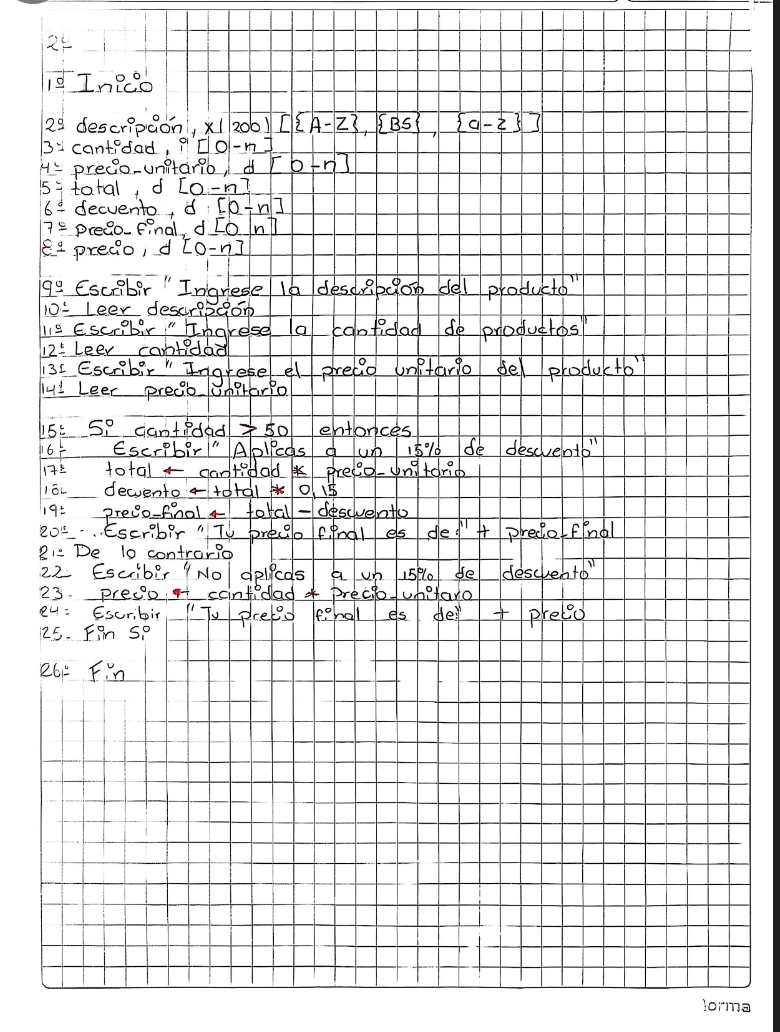 2-
1º Inicio
2º descripción, x(200) [{A-Z}, {BS}, {a-z}]
3- cantidad, i [0-n]
4- precio_unitario, d [0-n]
5- total, d [0-n]
6º decuento, d [0-n]
7º precio_final, d [0 n]
8º precio, d [0-n]
9º Escribir "Ingrese la descripción del producto"
10- Leer descripción
11º Escribir "Ingrese la cantidad de productos"
12- Leer cantidad
13- Escribir "Ingrese el precio unitario del producto"
14- Leer precio_unitario
15- Si cantidad > 50 entonces
16- Escribir "Aplicas a un 15% de descuento"
17- total ← cantidad * precio_unitario
18- decuento ← total * 0,15
19- precio_final ← total - descuento
20- Escribir "Tu precio final es de:" + precio_final
21- De lo contrario
22- Escribir "No aplicas a un 15% de descuento"
23. precio ← cantidad * precio_unitaro
24- Escribir "Tu precio final es de:" + precio
25. Fin Si
26- Fin
norma